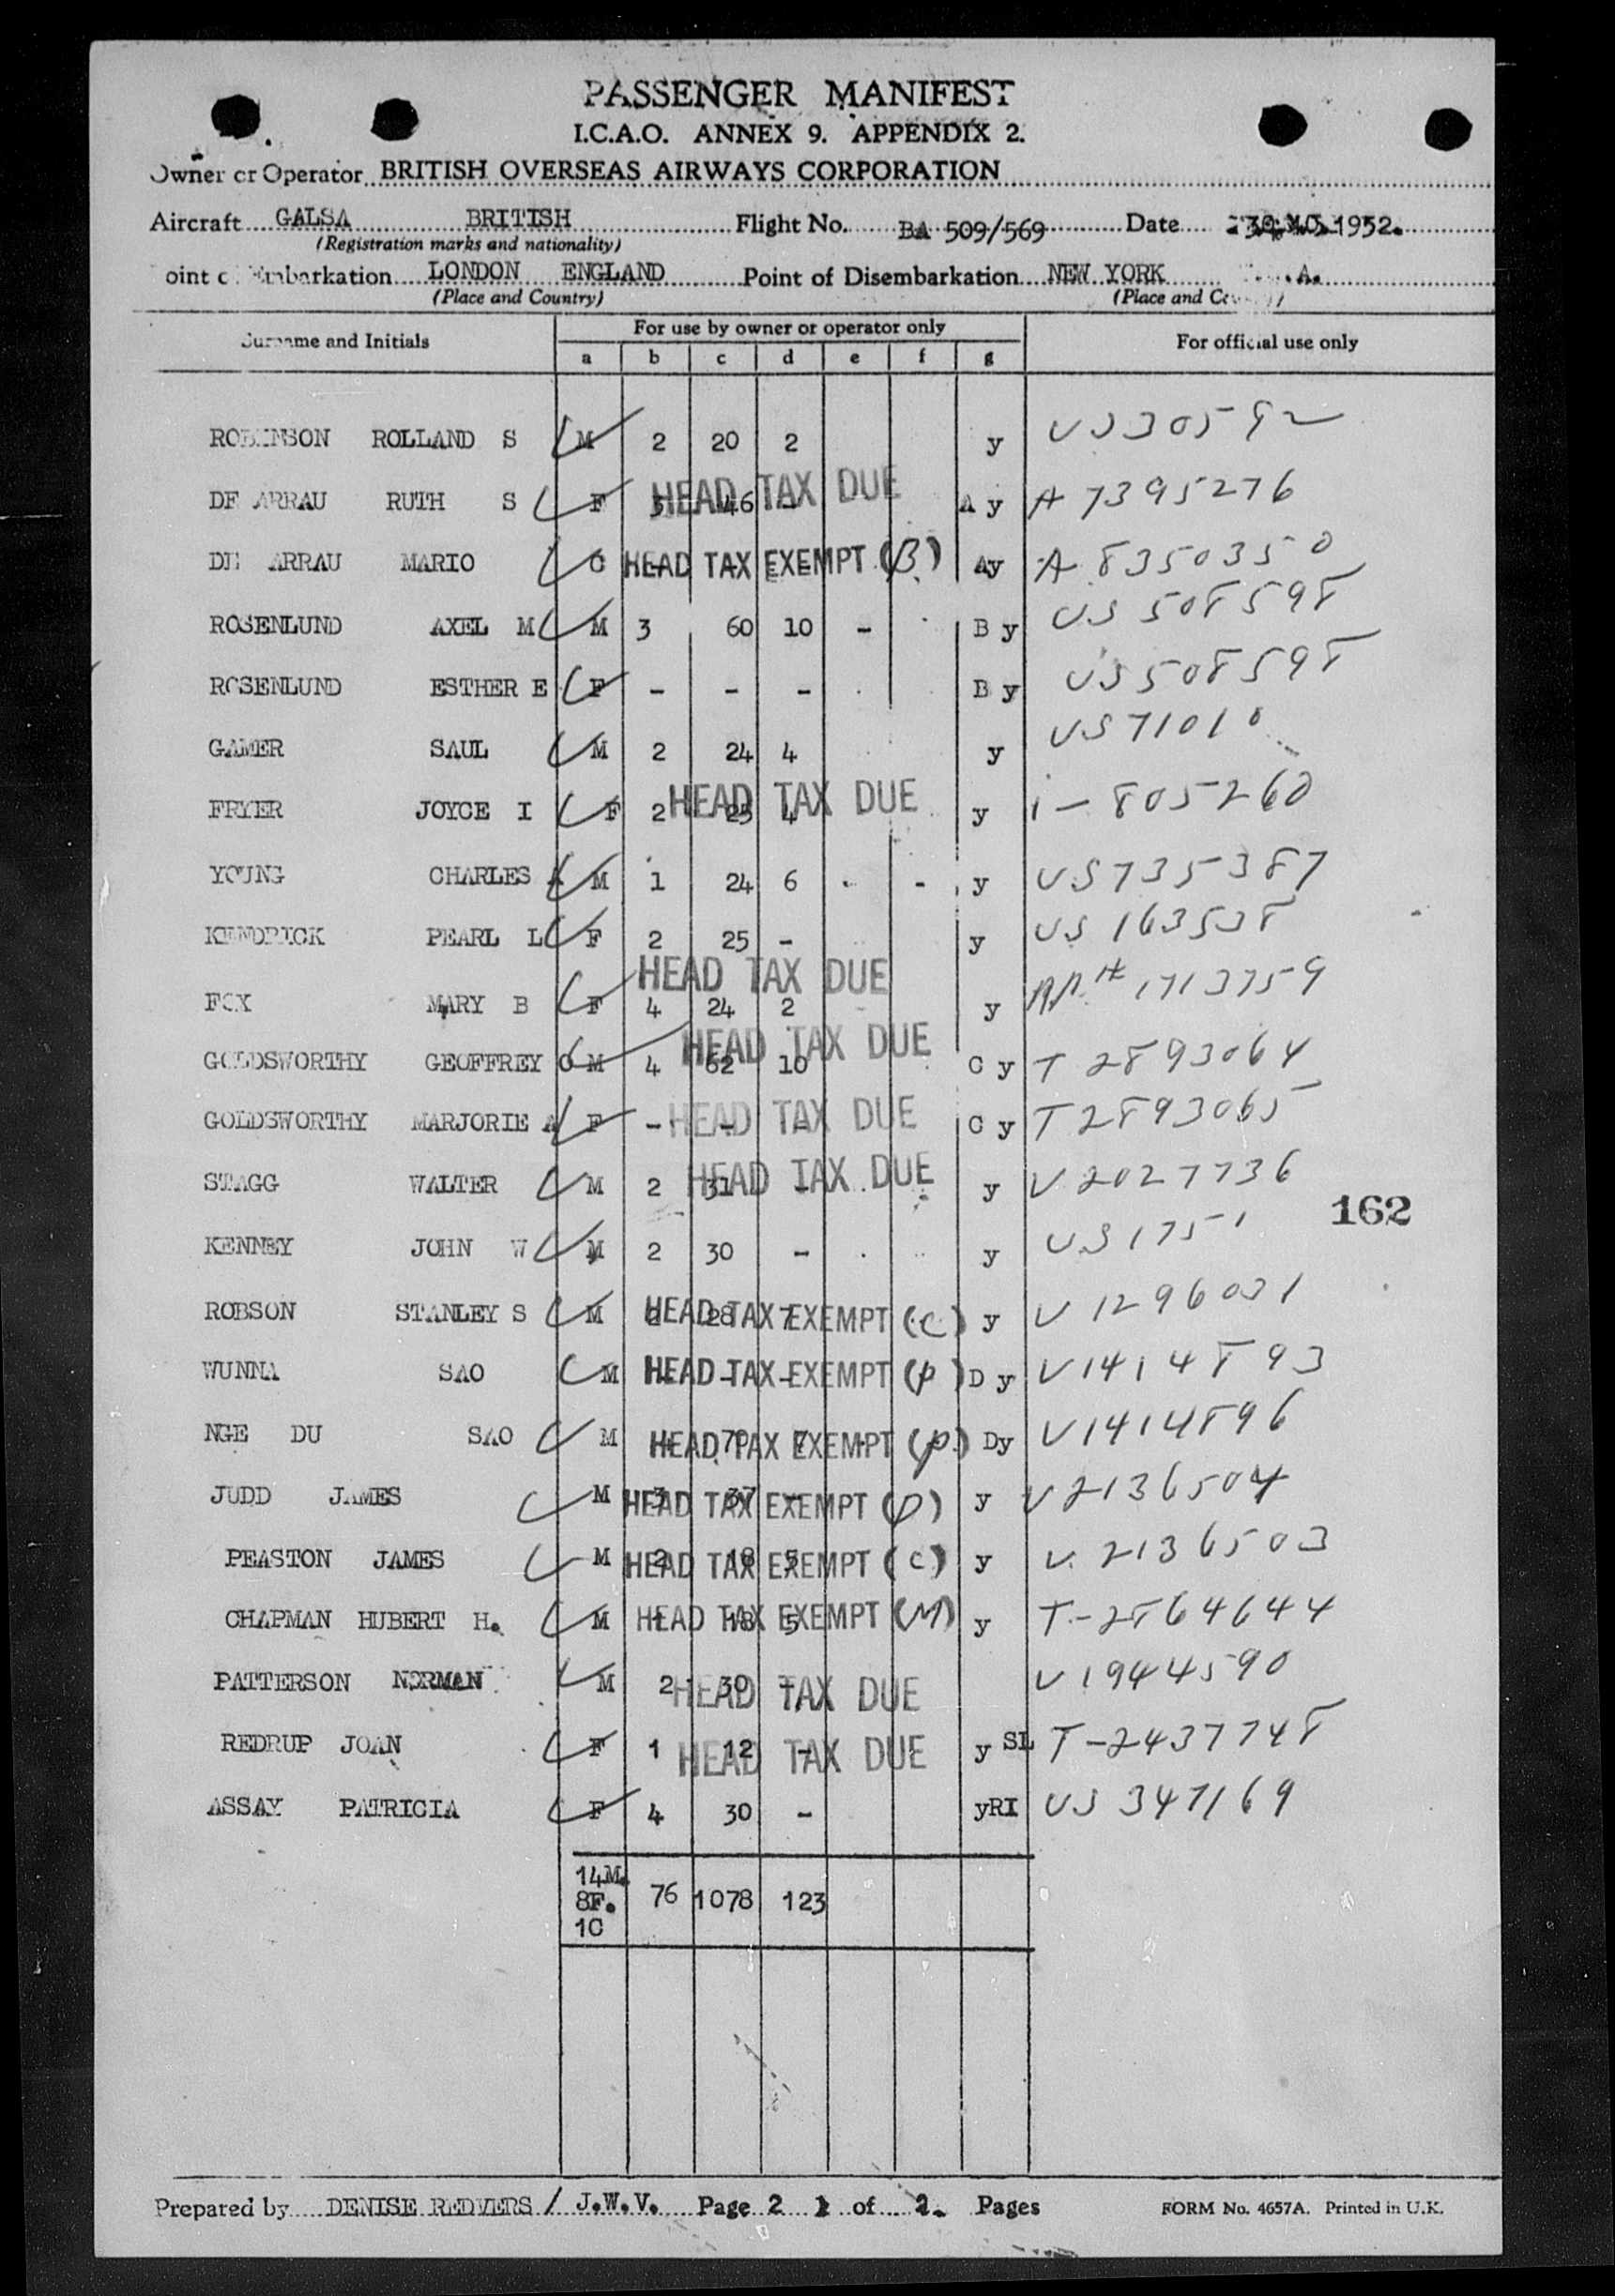 PASSENGER MANIFEST
I.C.A.O. ANNEX 9. APPENDIX 2.
Owner or Operator BRITISH OVERSEAS AIRWAYS CORPORATION
Aircraft GALSA BRITISH Flight No. BA 509/569 Date 1952.
(Registration marks and nationality)
oint o Embarkation LONDON ENGLAND Point of Disembarkation NEW YORK A.
(Place and Country) (Place and Co
Surname and Initials For use by owner or operator only For official use only
a b c d e f g
ROBINSON ROLLAND S M 2 20 2 y US 30582
DE ARRAU RUTH S F 3 46 - HEAD TAX DUE A y A 7395276
DE ARRAU MARIO C HEAD TAX EXEMPT (B) Ay A 8350350
ROSENLUND AXEL M M 3 60 10 - B y US 508598
ROSENLUND ESTHER E F - - - B y US 508598
GAMER SAUL M 2 24 4 y US 71010
FRYER JOYCE I F 2 25 4 HEAD TAX DUE y i-805260
YOUNG CHARLES A M 1 24 6 - y US 735387
KENDRICK PEARL L F 2 25 - y US 163538
FOX MARY B F 4 24 2 HEAD TAX DUE y 1713759
GOLDSWORTHY GEOFFREY C M 4 62 10 HEAD TAX DUE C y T 2893064
GOLDSWORTHY MARJORIE A F - - - HEAD TAX DUE C y T 2893065
STAGG WALTER M 2 31 - HEAD TAX DUE y V 2027736
162
KENNEY JOHN W M 2 30 - y US 1751
ROBSON STANLEY S M 2 28 7 HEAD TAX EXEMPT (C) y V 1296031
WUNNA SAO M - - - HEAD TAX EXEMPT (P) D y V 1414893
NGE DU SAO M 70 7 HEAD TAX EXEMPT (P) Dy V 1414896
JUDD JAMES M 3 37 - HEAD TAX EXEMPT (P) y V 2136504
PEASTON JAMES M 2 18 5 HEAD TAX EXEMPT (C) y V 2136503
CHAPMAN HUBERT H. M 1 18 5 HEAD TAX EXEMPT (M) y T-2864644
PATTERSON NORMAN M 2 30 - HEAD TAX DUE V 1944590
REDRUP JOAN F 1 12 - HEAD TAX DUE y SL T-2437748
ASSAY PATRICIA F 4 30 - yRI US 347169
14M.
8F. 76 1078 123
1C
Prepared by DENISE REDVERS / J.W.V. Page 2 of 2. Pages FORM No. 4657A. Printed in U.K.